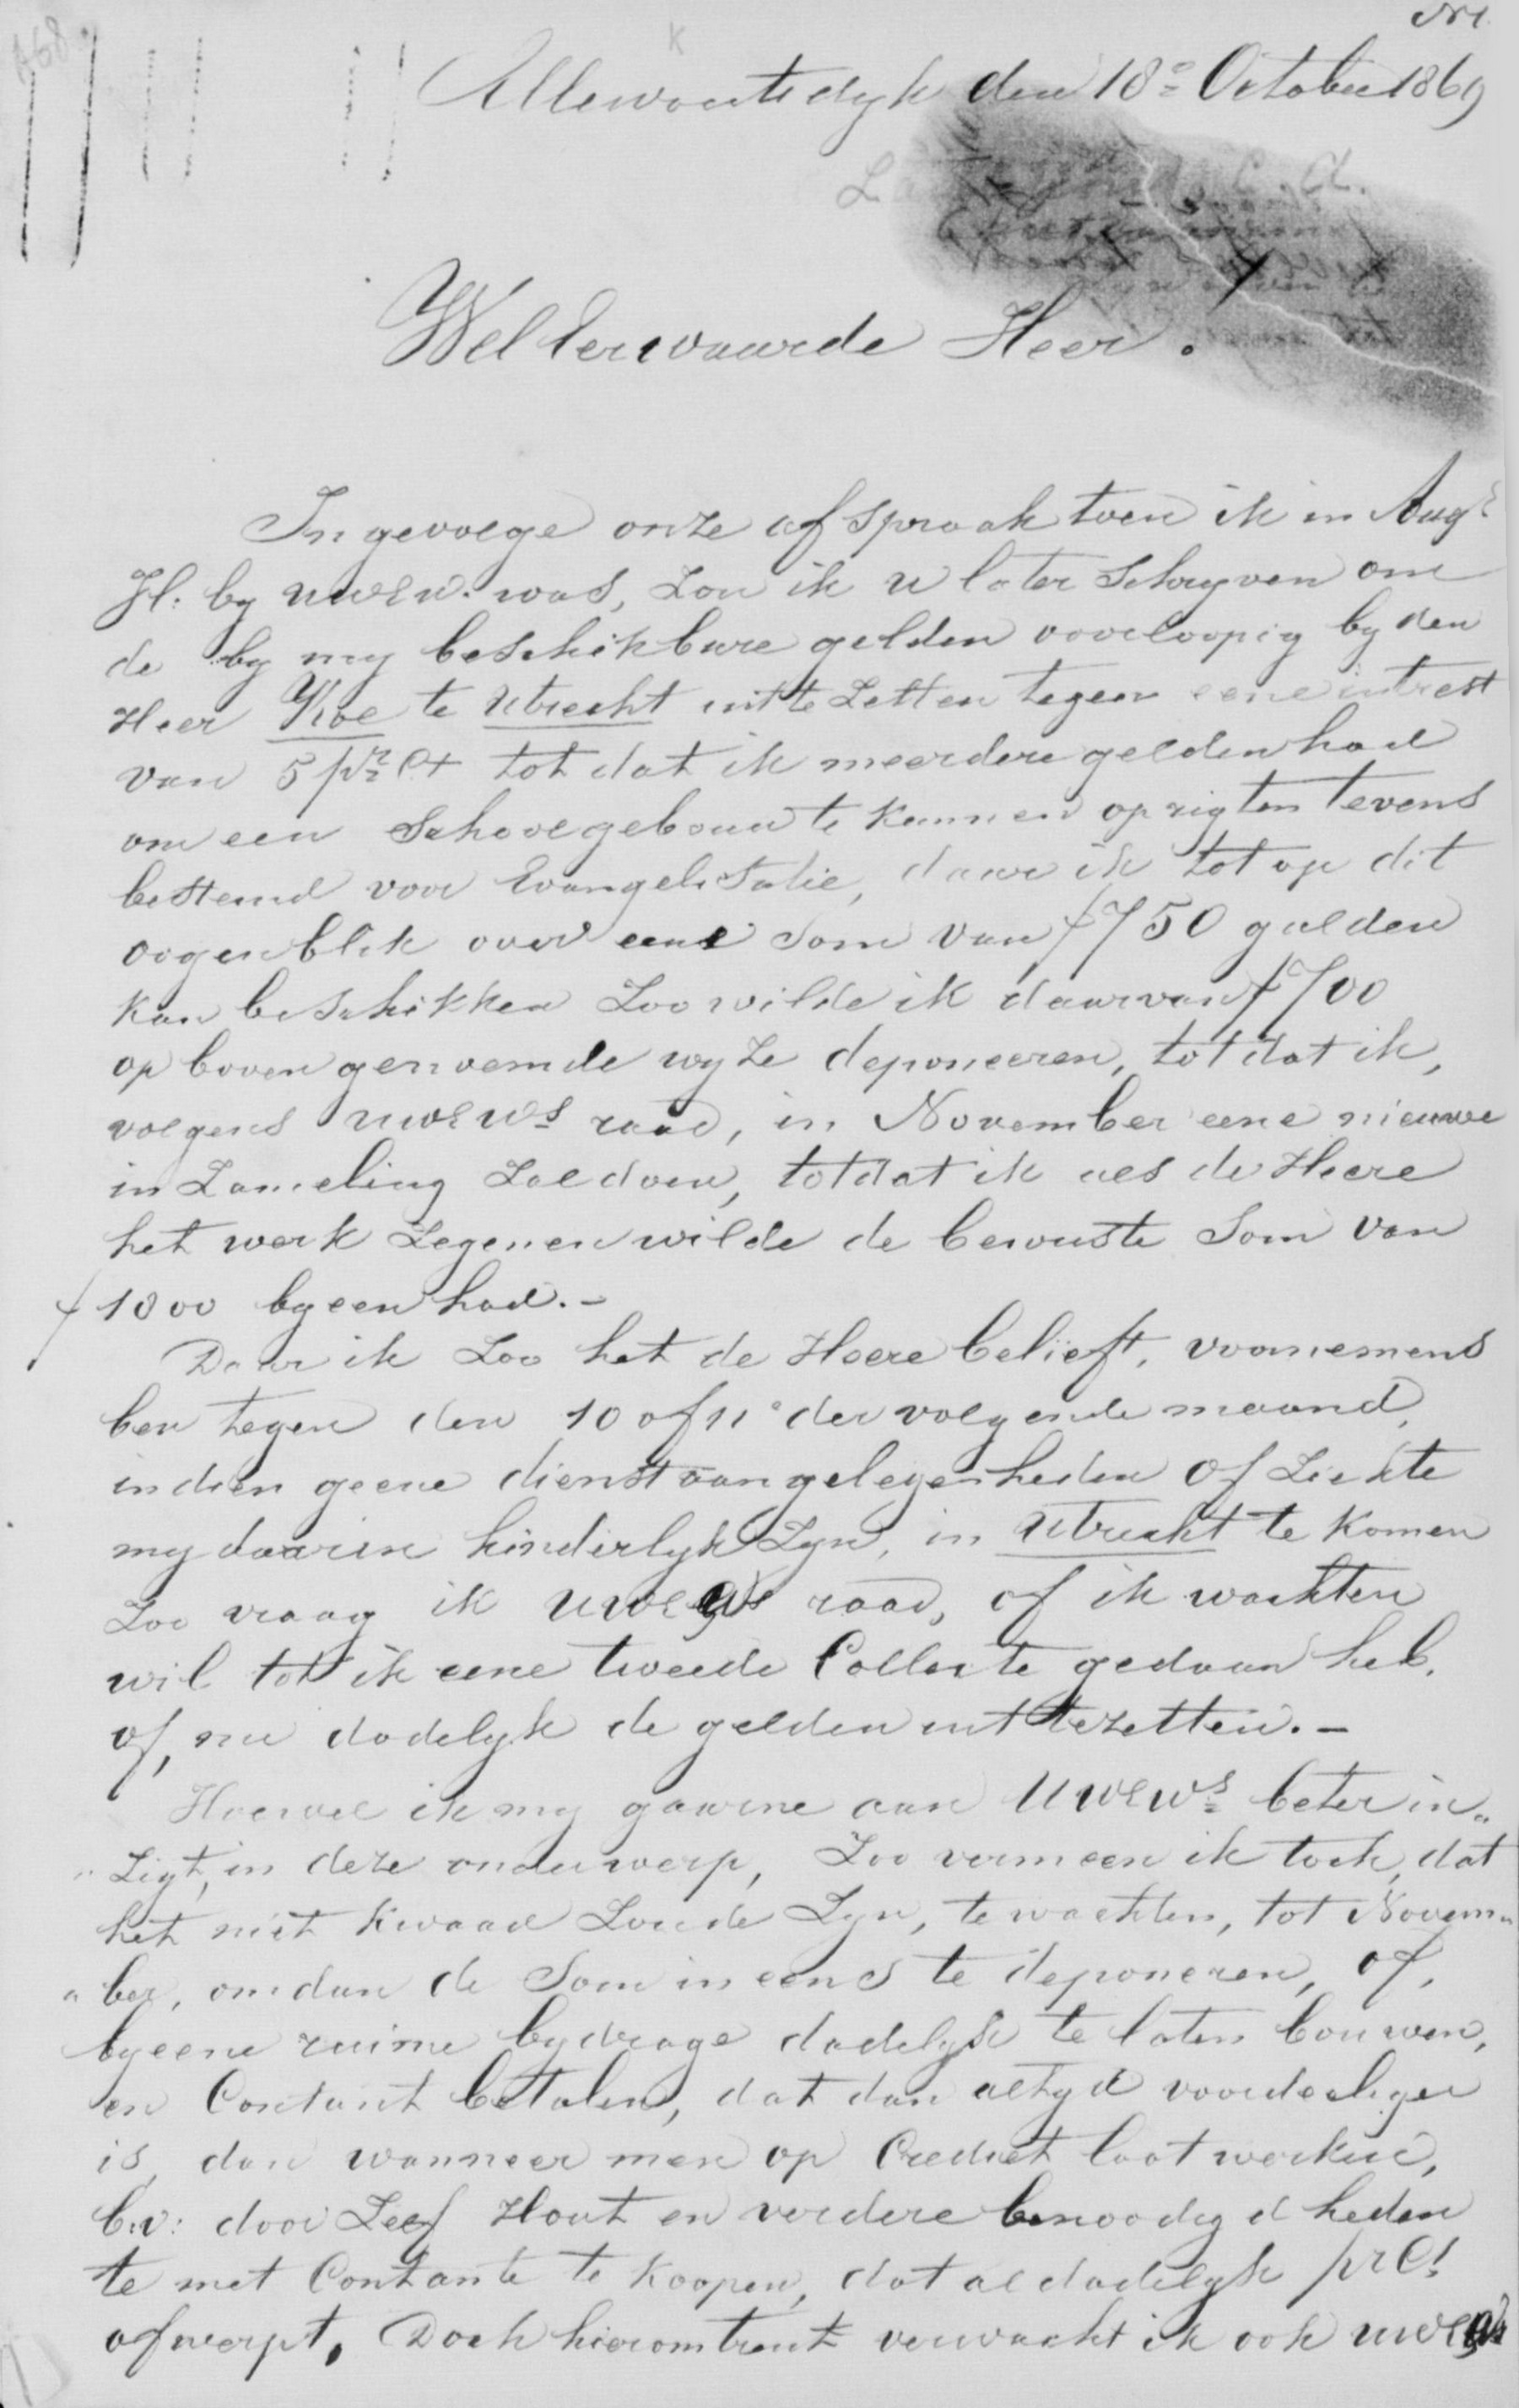 N1.
A68
K
Ellewoutsdyk den 18e October 1869
WelEerwaarde Heer.
Ingevolge onze afspraak toen ik in Augs
Jl: by UWEW. was, Zou ik U later Schryven om
de by my beschikbare gelden voorloopig by den
Heer Koe te Utrecht uitte Zetten tegen eene intrest
van 5 pr Ct tot dat ik meerdere gelden had
om een Schoolgebouw te kunnen oprigten tevens
bestemd voor Evangelisatie, daar ik tot op dit
oogenblik over eene Som van f750 gulden
kan beschikken Zoo wilde ik daarvan f700
op bovengenoemde wyze deponeeren, tot dat ik,
volgens UWEWs raad, in November eene nieuwe
inZameling Zal doen, totdat ik als de Heere
het werk Zegenen wilde de bewuste Som van
f 1000 byeen had.-
Daar ik Zoo het de Heere belieft, voornemens
ben tegen den 10 of 11e der volgende maand,
indien geene dienstaangelegenheden of Ziekte
my daarin hinderlyk Zyn, in Utrecht te komen
Zoo vraag ik UWEWs raad, of ik wachten
wil tot ik eene tweede Collecte gedaan heb,
of, nu dadelyk de gelden uit te zetten.-
Hoewel ik my gaarne aan UWEWs beter in„
„Zigt, in deze onderwerp, Zoo vermeen ik toch, dat
het niet kwaad Zoude Zyn, te wachten, tot Novem„
„ber, om dan de Som in eens te deponeren, of,
by eene ruime bydrage dadelyk te laten bouwen,
en Contant betalen, dat dan altyd voordeliger
is, dan wanneer men op Crediet laat werken,
b:v: door Zelf Hout en verdere benoodigdheden
te met Contante te koopen, dat al dadelyk pr Ct
afwerpt. Doch hieromtrent verwacht ik ook UWEWs